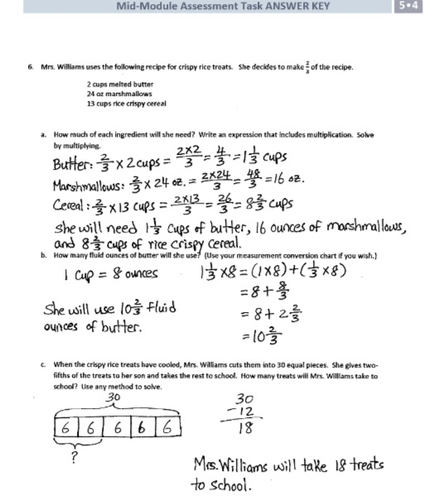 Mid-Module Assessment Task ANSWER KEY 5•4
6. Mrs. Williams uses the following recipe for crispy rice treats. She decides to make 2/3 of the recipe.
2 cups melted butter
24 oz marshmallows
13 cups rice crispy cereal
a. How much of each ingredient will she need? Write an expression that includes multiplication. Solve
by multiplying.
Butter: 2/3 × 2 cups = 2×2/3 = 4/3 = 1 1/3 cups
Marshmallows: 2/3 × 24 oz. = 2×24/3 = 48/3 = 16 oz.
Cereal: 2/3 × 13 cups = 2×13/3 = 26/3 = 8 2/3 cups
She will need 1 1/3 cups of butter, 16 ounces of marshmallows,
and 8 2/3 cups of rice crispy cereal.
b. How many fluid ounces of butter will she use? (Use your measurement conversion chart if you wish.)
1 cup = 8 ounces
1 1/3 × 8 = (1×8) + (1/3 × 8)
= 8 + 8/3
= 8 + 2 2/3
= 10 2/3
She will use 10 2/3 fluid
ounces of butter.
c. When the crispy rice treats have cooled, Mrs. Williams cuts them into 30 equal pieces. She gives two-
fifths of the treats to her son and takes the rest to school. How many treats will Mrs. Williams take to
school? Use any method to solve.
30
6 6 6 6 6
?
30
-12
18
Mrs. Williams will take 18 treats
to school.